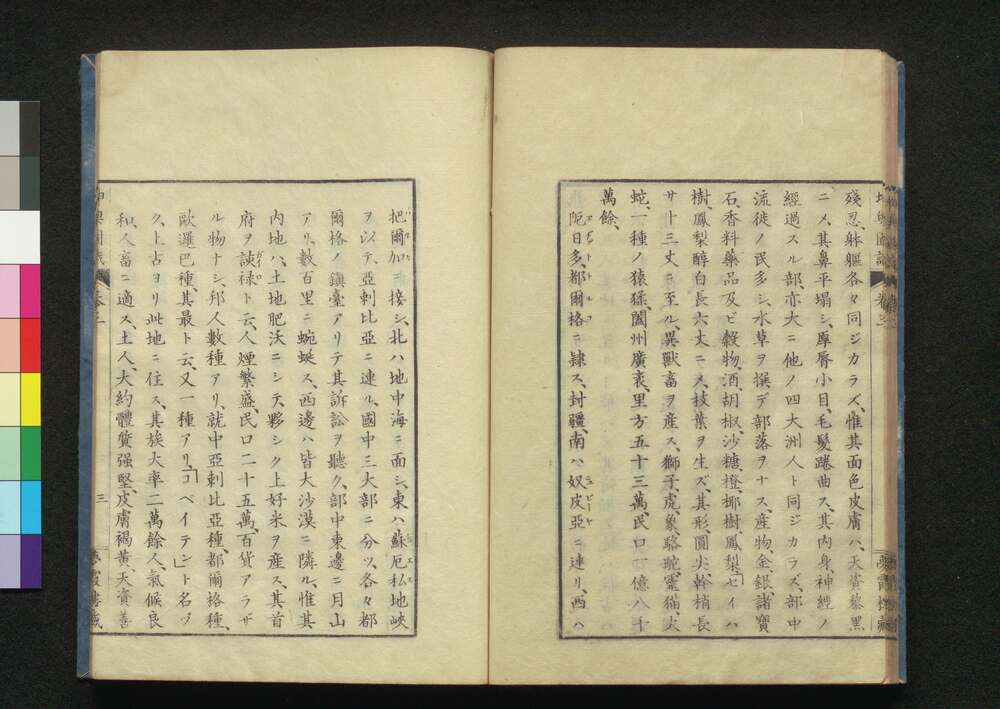 殘忍、躰軀各々同ジカラズ、惟其面色皮膚ハ、天資黎黒
ニメ、其鼻平塌シ、厚唇小目、毛髮踡曲ス、其内身神經ノ
經過スル部、亦大ニ他ノ四大洲人ト同ジカラズ、部中
流徙ノ民多シ、水草ヲ撰デ部落ヲナス、産物、金、銀、諸寶
石、香料藥品及ビ穀物、酒、胡椒、沙糖、橙、椰樹、鳳梨、セイハ
樹、鳳梨醇白長六丈ニメ、枝葉ヲ生ズ、其形、圓尖幹梢長
サ十三丈ニ至ル、異獸畜ヲ産ス、獅子、虎、象、駱駝、靈猫、大
蛇、一種ノ猿猱、闔州廣袤、里方五十三萬、民口一億八十
萬餘、
阨日多、都爾格ニ隷ス、封疆、南ハ奴皮亞ニ連リ、西ハ
把爾加ニ接シ、北ハ地中海ニ面シ、東ハ蘇厄私地峽
ヲ以テ、亞剌比亞ニ連ル、國中三大部ニ分ツ、各々都
爾格ノ鎮臺アリテ其訴訟ヲ聽ク、部中東邊ニ月山
アリ、數百里ニ蜿蜒ス、西邊ハ皆大沙漠ニ隣ル、惟其
内地ハ、土地肥沃ニシテ夥シク上好米ヲ産ス、其首
府ヲ諛禄ト云、人煙繁盛、民口二十五萬、百貨アラザ
ル物ナシ、邦人數種アリ、就中亞剌比亞種、都爾格種、
歐邏巴種、其最ト云、又一種アリ、「コペイテン」ト名ヅ
ク、上古ヨリ此地ニ住ス、其族大率二萬餘人、氣候良
和、人畜ニ適ス、土人、大約體質强堅、皮膚褐黄、天資善
三